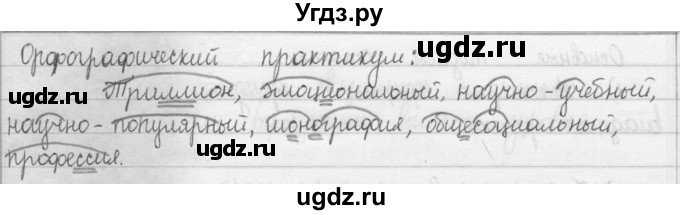 Угдз.ру
Орфографический практикум:
Триллион, эмоциональный, научно-учебный,
научно-популярный, ионография, общесоциальный,
профессия.
ugdz.ru
ugdz.ru
ugdz.ru
ugdz.ru
ugdz.ru